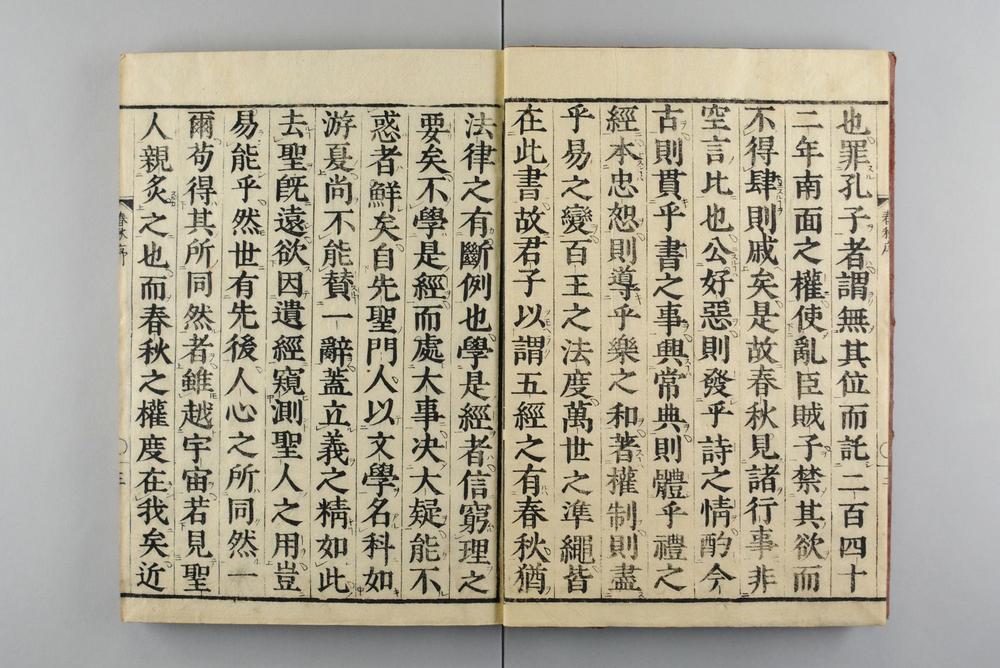 也罪孔子者謂無其位而託二百四十
二年南面之權使亂臣賊子禁其欲而
不得肆則戚矣是故春秋見諸行事非
空言比也公好惡則發乎詩之情酌今
古則貫乎書之事興常典則體乎禮之
經本忠恕則導乎樂之和著權制則盡
乎易之變百王之法度萬世之準繩皆
在此書故君子以謂五經之有春秋猶
法律之有斷例也學是經者信窮理之
要矣不學是經而處大事决大疑能不
惑者鮮矣自先聖門人以文學名科如
游夏尚不能賛一辭蓋立義之精如此
去聖既遠欲因遺經窺測聖人之用豈
易能乎然世有先後人心之所同然一
爾苟得其所同然者雖越宇宙若見聖
人親炙之也而春秋之權度在我矣近
春秋序
春秋序